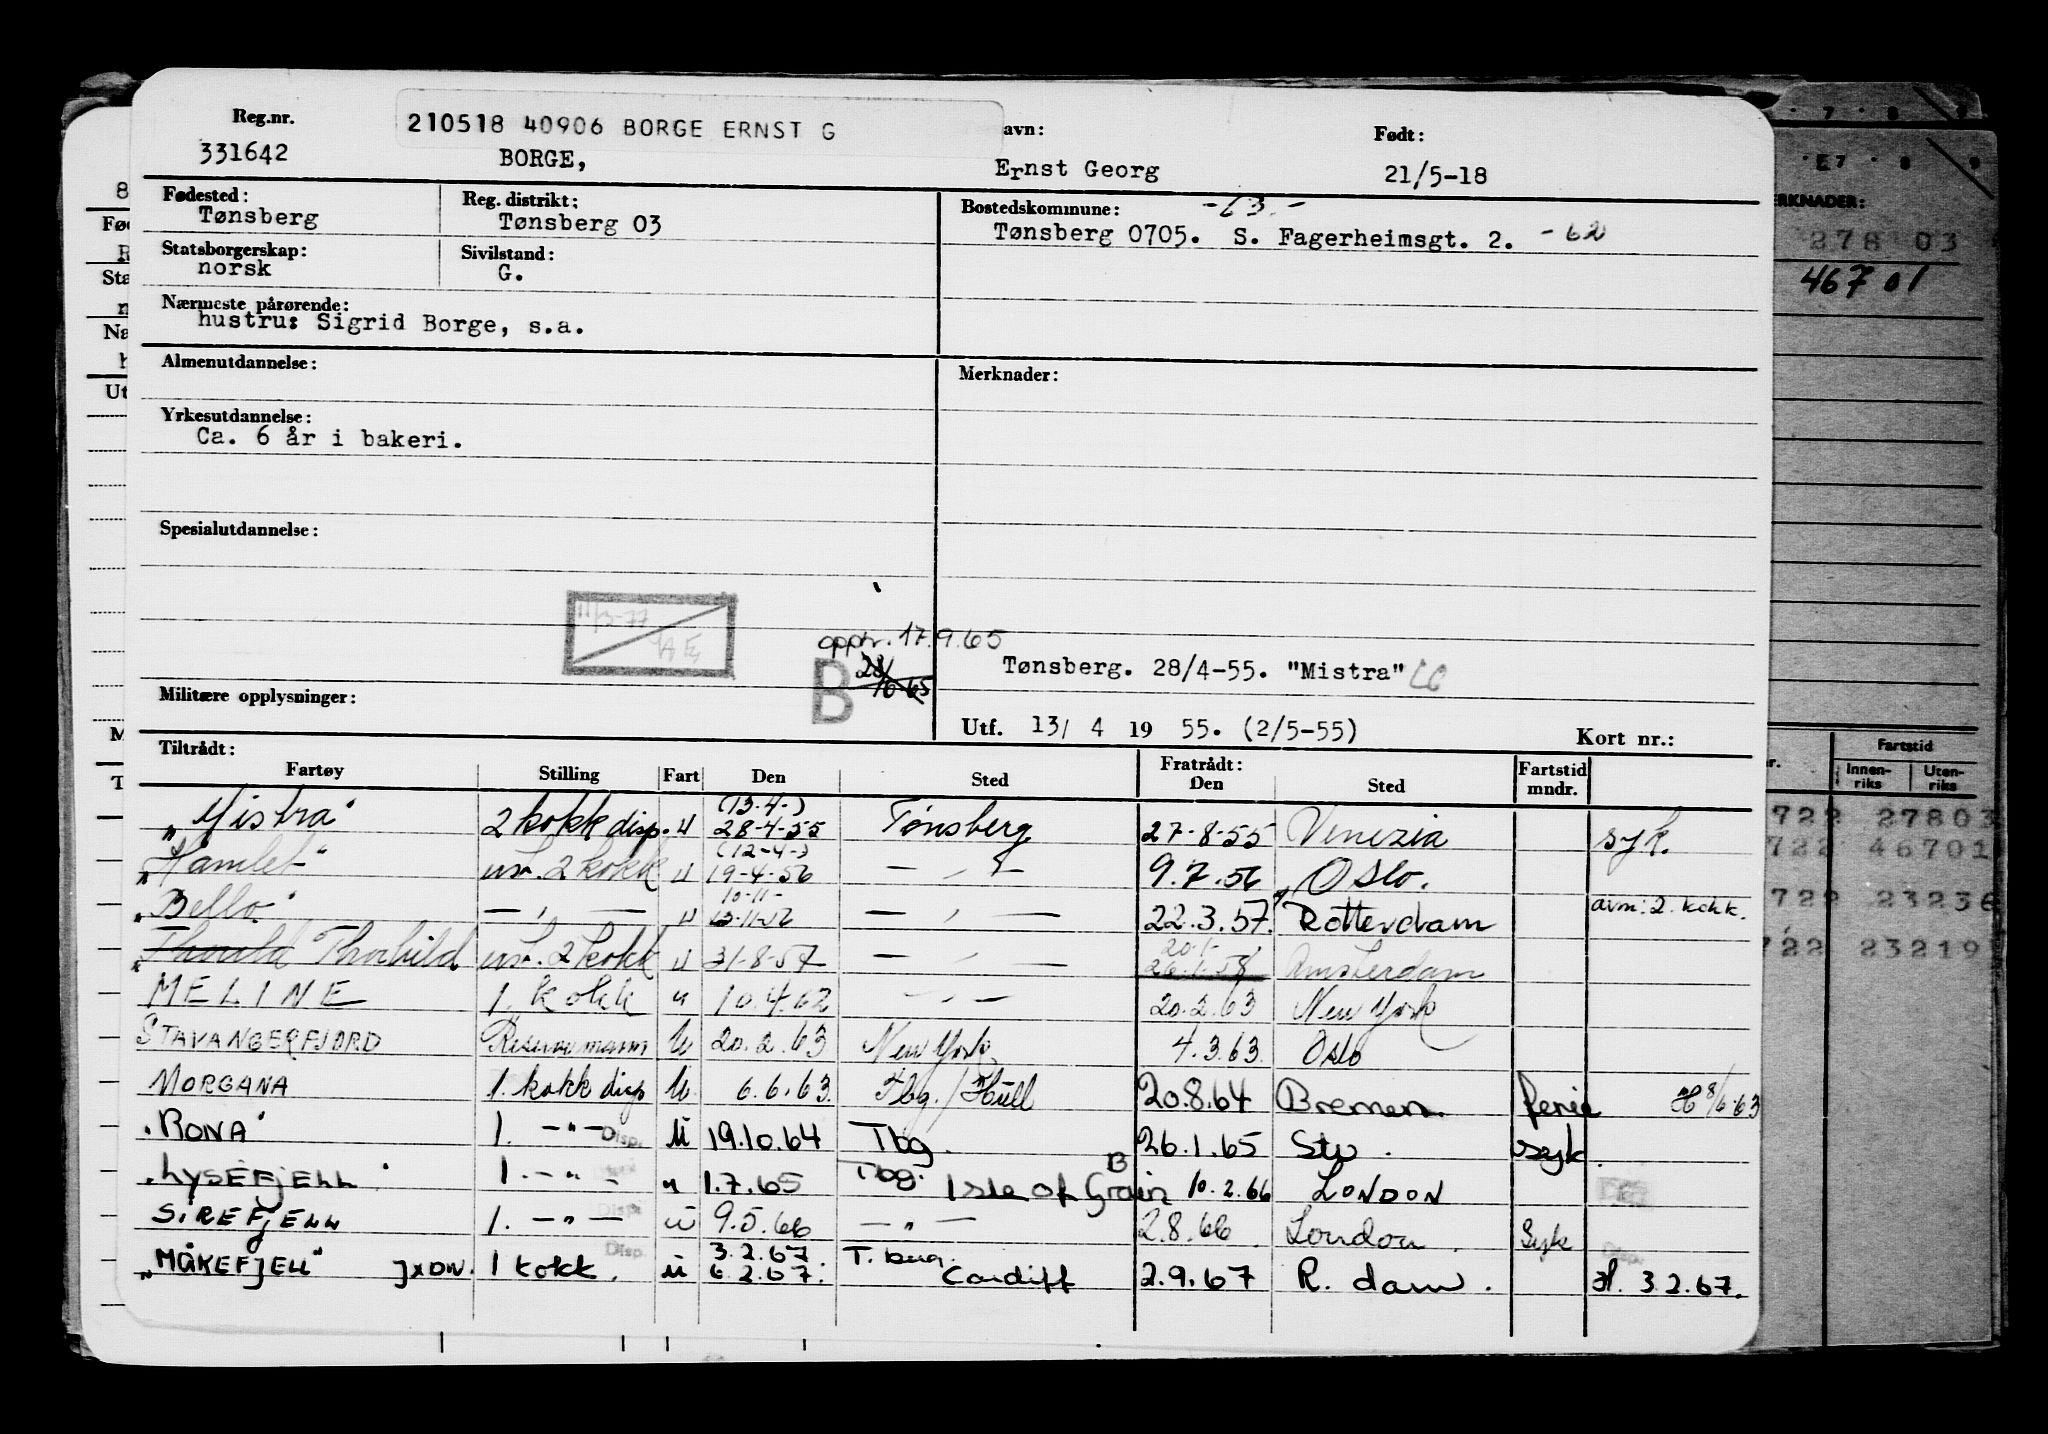 Reg.nr. 210518 40906 BORGE ERNST G avn: Født:
331642 BORGE, Ernst Georg 21/5-18
Fødested: Reg. distrikt: Bostedskommune: -63.-
Tønsberg Tønsberg 03 Tønsberg 0705. S. Fagerheimsgt. 2. -62
Statsborgerskap: Sivilstand:
norsk G.
Nærmeste pårørende:
hustru: Sigrid Borge, s.a.
Almenutdannelse: Merknader:
Yrkesutdannelse:
Ca. 6 år i bakeri.
Spesialutdannelse:
11/3-77
opptr. 17.9.65
B 28/10-65
Tønsberg. 28/4-55. "Mistra"
Militære opplysninger:
Utf. 13/ 4 19 55. (2/5-55) Kort nr.:
Tiltrådt: Fratrådt: Fartstid
Fartøy Stilling Fart Den Sted Den Sted mndr.
"Mistra" 2 kokk disp. u (13-4-) 28-4-55 Tønsberg 27-8-55 Venezia syk.
"Hamlet" usl. 2 kokk u (12-4-) 19-4-56 — " — 9.7.56 Oslo.
"Bello" — " — u 10-11- 13-11-56 — " — 22.3.57. Rotterdam avm: 2. kokk.
Thorhild usl. 2 kokk u 31-8-57 — " — 20-1- 26.1.58 Amsterdam
MELINE 1. kokk u 10.4.62 — " — 20.2.63 New York
STAVANGERFJORD Reservemann U 20.2.63 New York 4.3.63. Oslo
MORGANA 1. kokk disp U 6.6.63. Tbg./Hull 20.8.64 Bremen. ferie 8/6-63
"RONA" 1. — " — Disp. U 19.10.64 Tbg. 26.1.65 Stv. syk.
"LYSEFJELL" 1. — " — u 1.7.65 Tbg. Isle of Grain B 10.2.66 LONDON
SIREFJELL 1. — " — Disp. u 9.5.66 — " — 2.8.66. London. Syk
"MÅKEFJELL" 1 kokk. Disp. u 3.2.67. 6.2.67. T. berg. Cardiff 2.9.67 R. dam. 3.2.67.
E7 8 9
ERKNADER:
278 03
467 01
Fartstid
Innen-riks Uten-riks
722 27803
722 46701
722 23236
722 23219